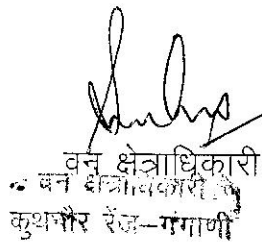 वन क्षेत्राधिकारी
वन क्षेत्राधिकारी
कुथनौर रेंज-गंगाणी